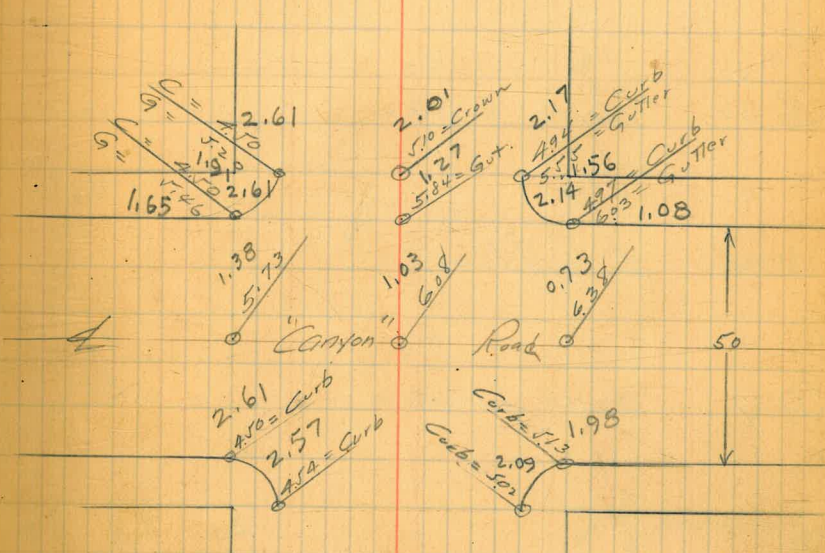 C = 4.50
G = 5.20
2.61
1.91
C = 4.50
G = 5.46
2.61
1.65
2.01
5.10 = Crown
1.27
5.84 = Gut.
2.17
4.94 = Curb
5.55 = Gutter
1.56
2.14
4.97 = Curb
6.03 = Gutter
1.08
1.38
5.73
1.03
6.08
0.73
6.38
"Canyon" Road
50
2.61
4.50 = Curb
2.57
4.54 = Curb
Curb = 5.13
1.98
Curb = 5.02
2.09